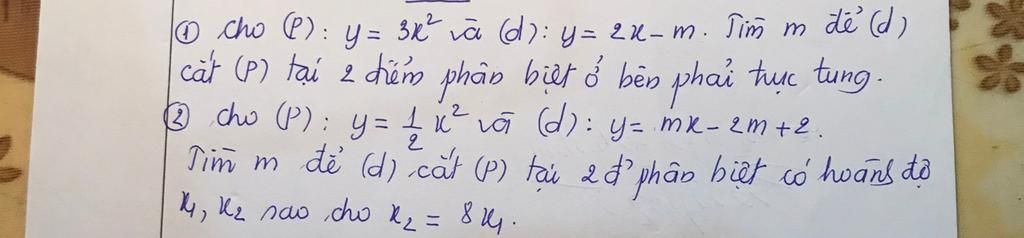 ① cho (P): y = 3x² và (d): y = 2x - m. Tìm m để (d)
cắt (P) tại 2 điểm phân biệt ở bên phải trục tung.
② cho (P): y = 1/2 x² và (d): y = mx - 2m + 2.
Tìm m để (d) cắt (P) tại 2 đ' phân biệt có hoành độ
x₁, x₂ sao cho x₂ = 8x₁.